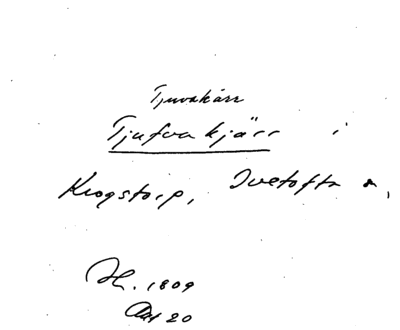 Tjuvakärr
Tjufva kjärr i
Krogstorp, Ivetofta s,
Hr. 1809
Akt 20